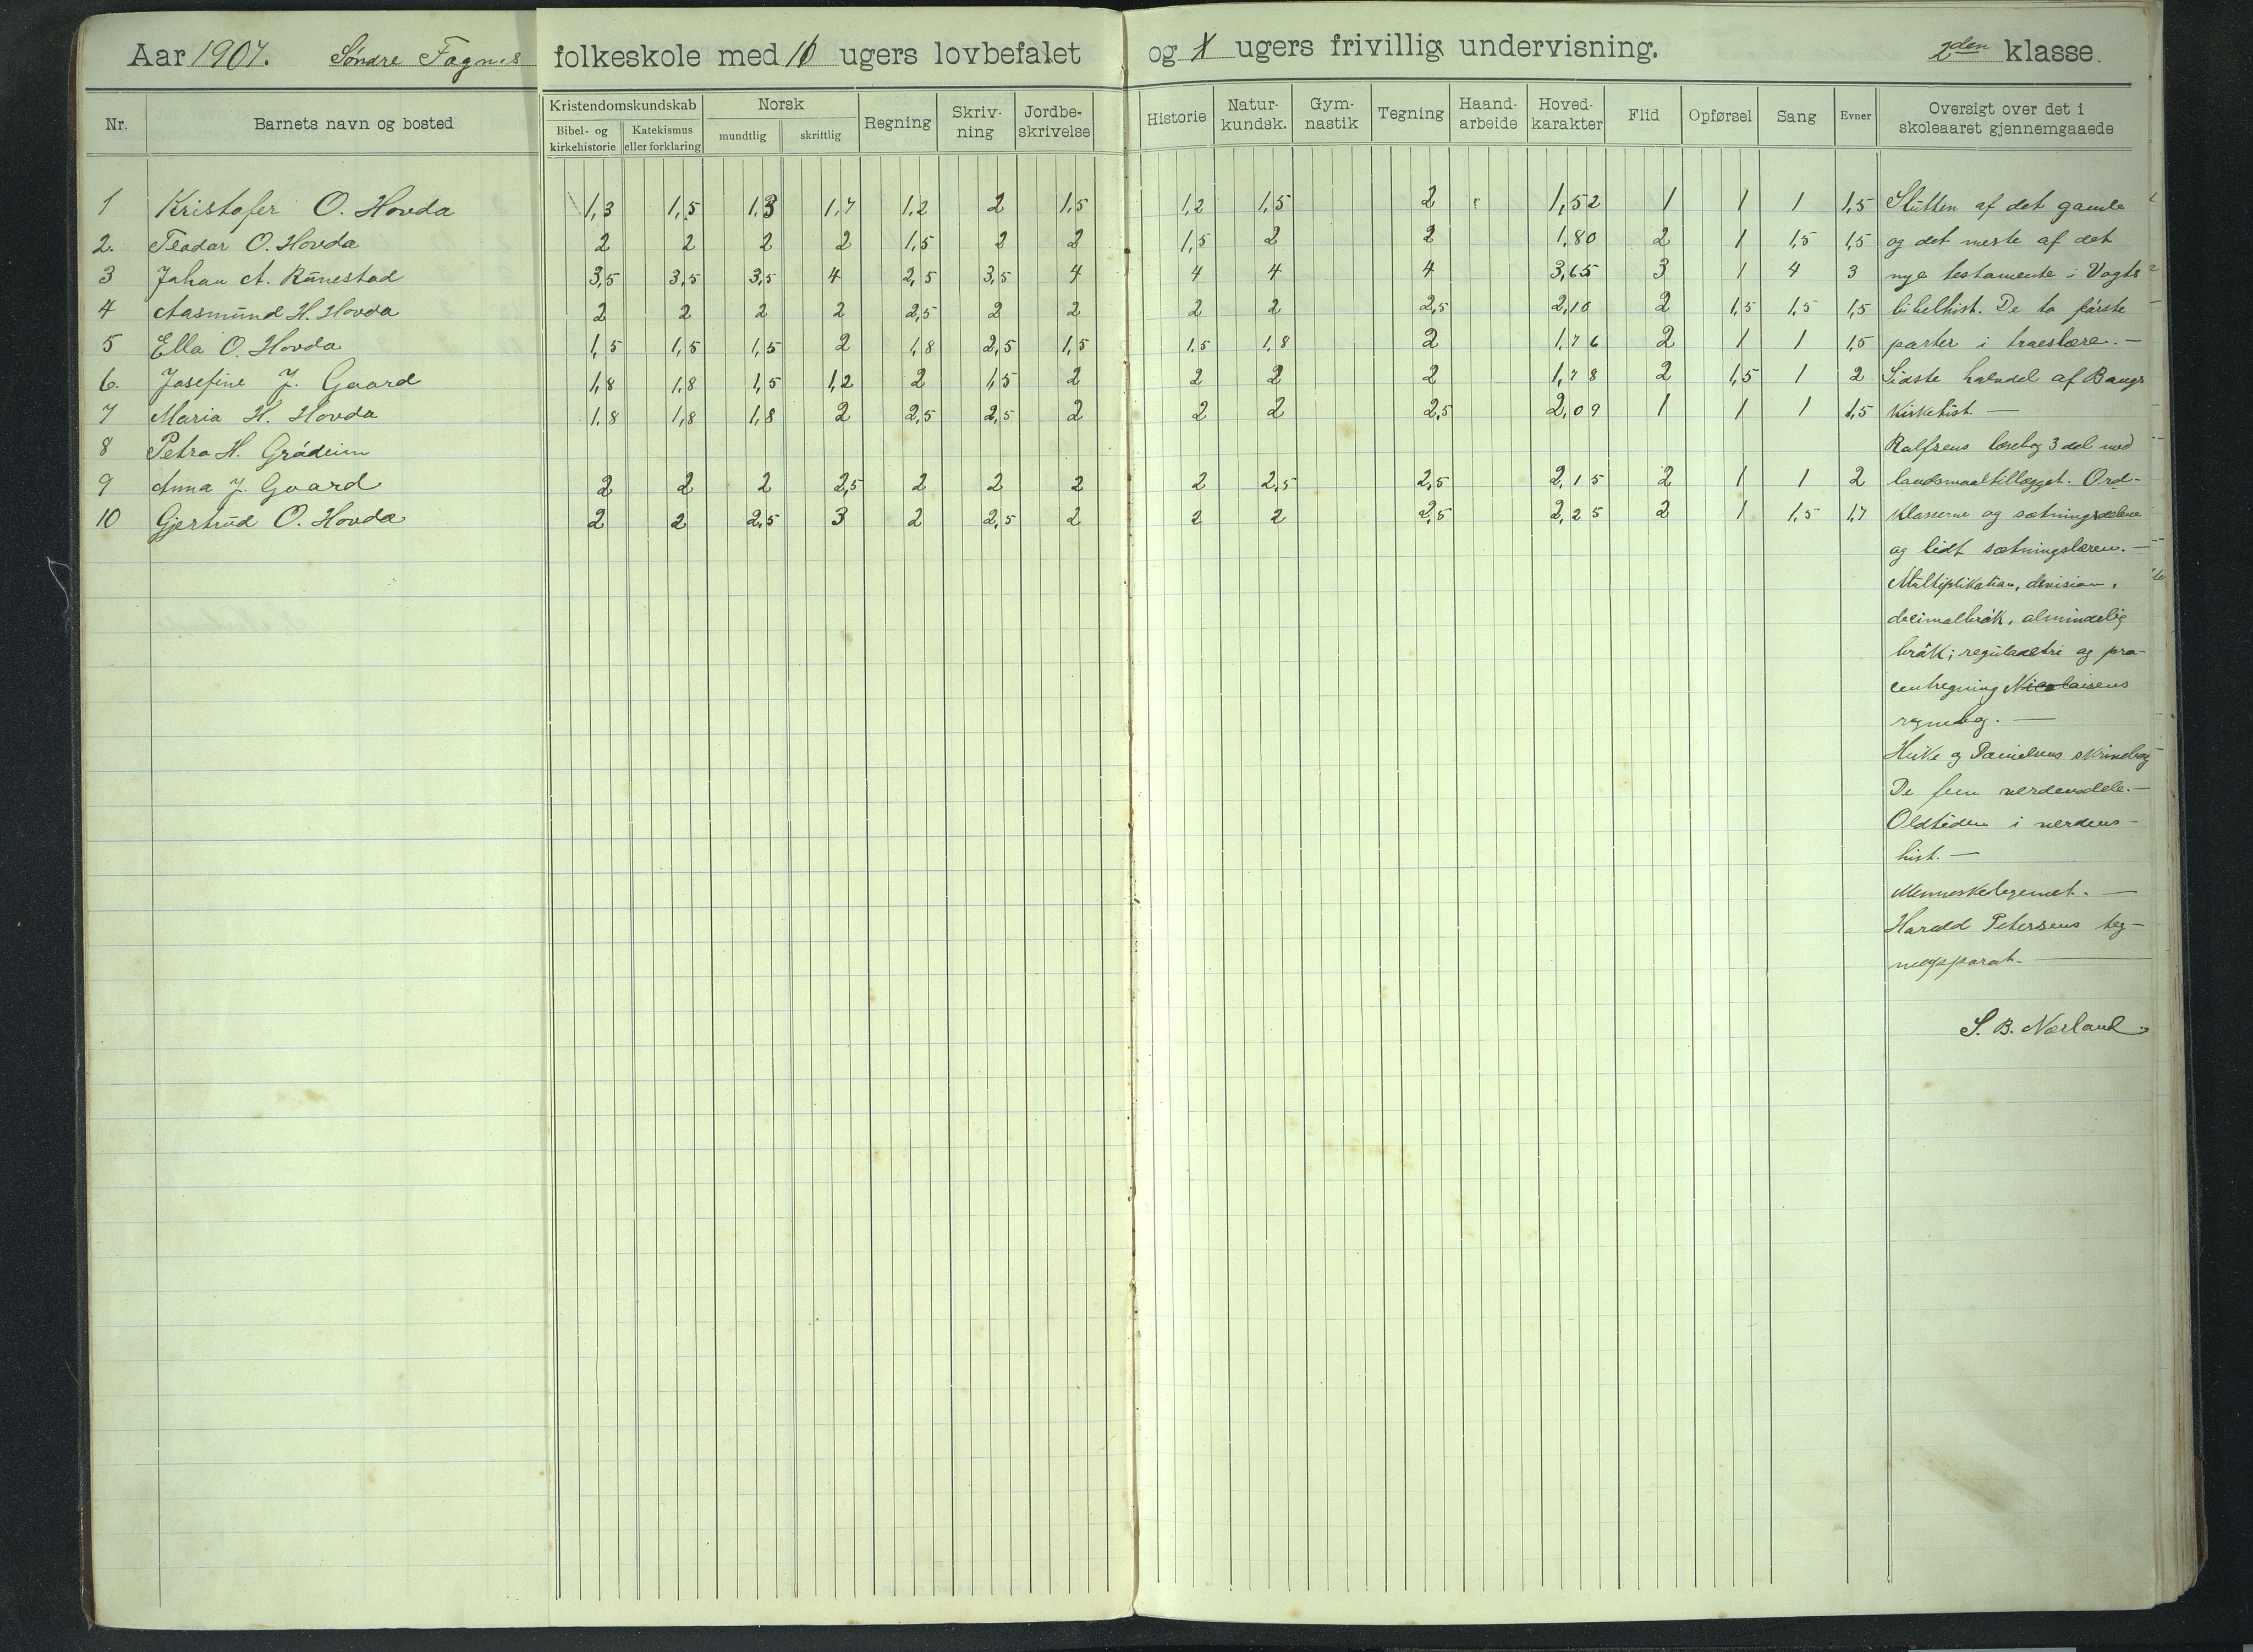 Aar 1907. Søndre Fognes folkeskole med 16 ugers lovbefalet og X ugers frivillig undervisning. 2den klasse.
Nr. Barnets navn og bosted Kristendomskundskab Norsk Regning Skriv-ning Jordbe-skrivelse Historie Natur-kundsk. Gym-nastik Tegning Haand-arbeide Hoved-karakter Flid Opførsel Sang Evner Oversigt over det i skoleaaret gjennemgaaede
Bibel- og kirkehistorie Katekismus eller forklaring mundtlig skriftlig
1 Kristofer O. Hovda 1,3 1,5 1,3 1,7 1,2 2 1,5 1,2 1,5 2 1,52 1 1 1 1,5 Slutten af det gamle
2. Teodor O. Hovda 2 2 2 2 1,5 2 2 1,5 2 2 1,80 2 1 1,5 1,5 og det meste af det
3 Johan A. Runestad 3,5 3,5 3,5 4 2,5 3,5 4 4 4 4 3,65 3 1 4 3 nye testamente i Vogts
4 Aasmund H. Hovda 2 2 2 2 2,5 2 2 2 2 2,5 2,10 2 1,5 1,5 1,5 bibelhist. De to første
5 Ella O. Hovda 1,5 1,5 1,5 2 1,8 2,5 1,5 1,5 1,8 2 1,76 2 1 1 1,5 parter i troeslære. —
6. Josefine J. Gaard 1,8 1,8 1,5 1,2 2 1,5 2 2 2 2 1,78 2 1,5 1 2 Sidste halvdel af Bangs
7 Maria H. Hovda 1,8 1,8 1,8 2 2,5 2,5 2 2 2 2,5 2,09 1 1 1 1,5 Kirkehist. —
8 Petra H. Grødeim Rolfsens læsebog 3 del med
9 Anna J. Gaard 2 2 2 2,5 2 2 2 2 2,5 2,5 2,15 2 1 1 2 landsmaaltillægget. Ord-
10 Gjertrud O. Hovda 2 2 2,5 3 2 2,5 2 2 2 2,5 2,25 2 1 1,5 1,7 klasserne og sætningsdelene
og lidt sætningslæren. —
Multiplikation, division,
decimalbrøk, almindelig
brøk; reguladetri og pro-
centregning Nicolaisens
regnebog. —
Huke og Danielsens skrivebog
De fem verdensdele. —
Oldtiden i verdens-
hist. —
Menneskelegemet. —
Harald Petersens teg-
neapparat. —
S. B. Nærland.